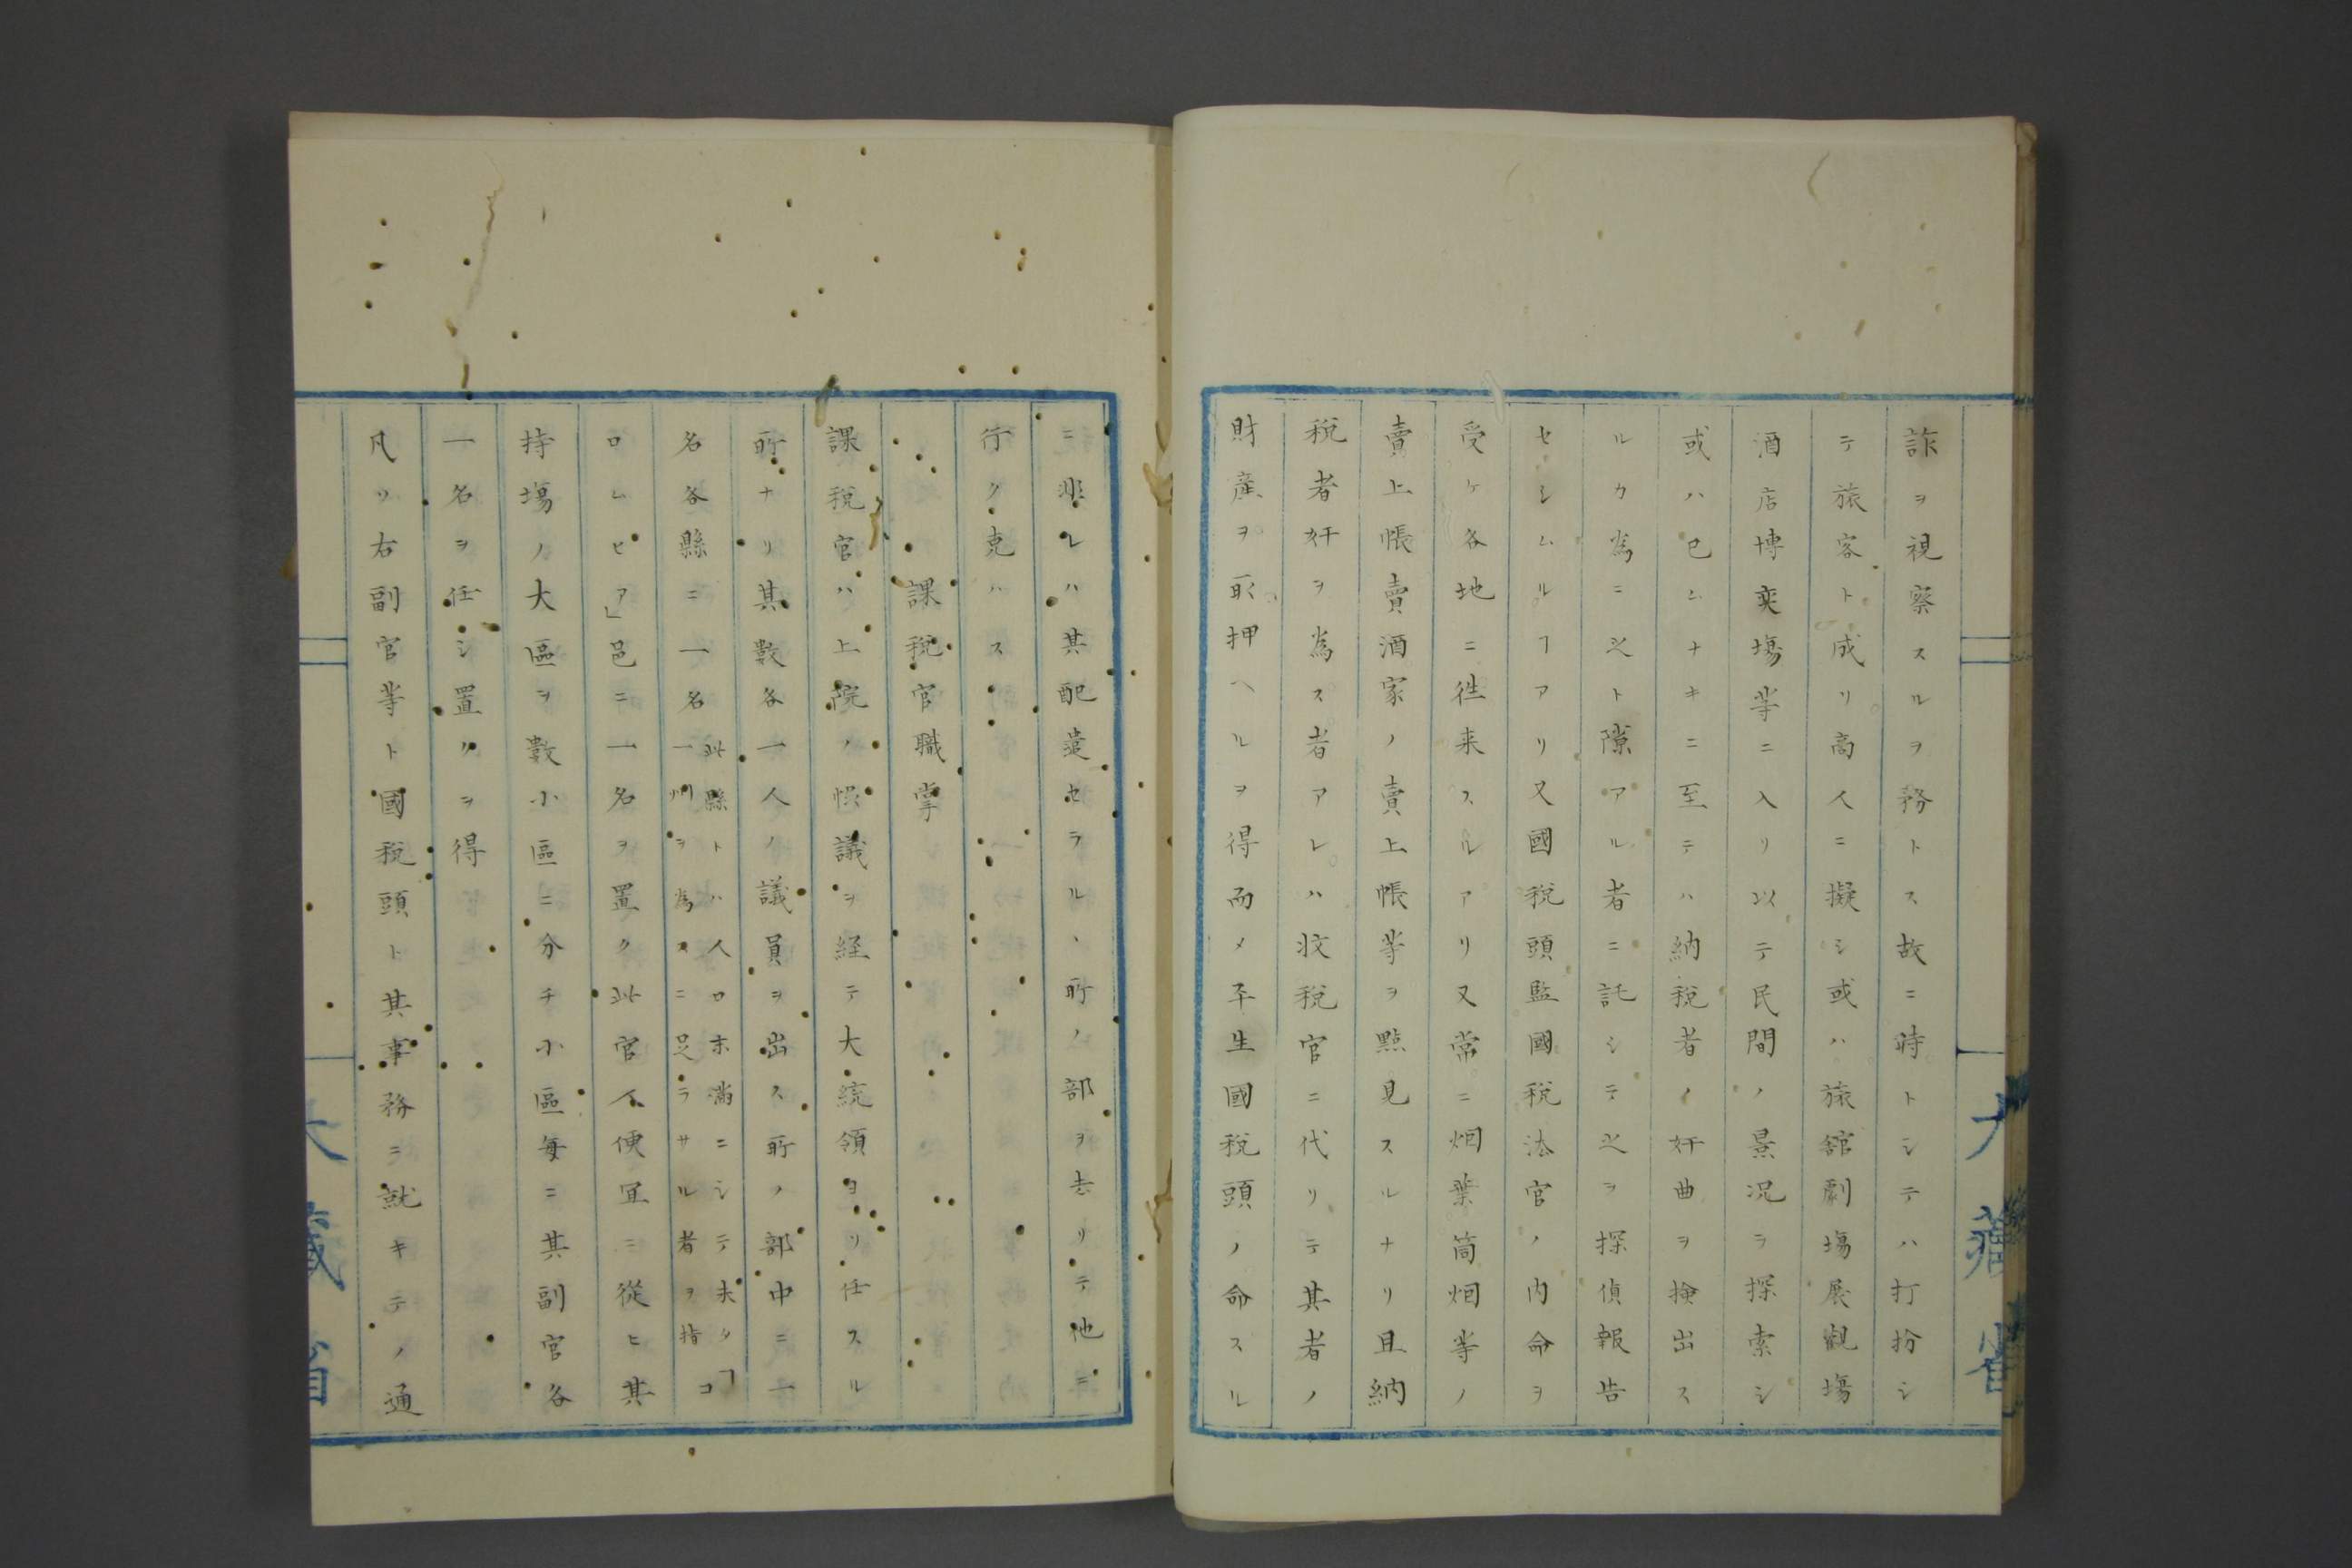 詐ヲ視察スルヲ務トス故ニ時トシテハ打扮シ
テ旅客ト成リ高人ニ擬シ或ハ旅舘劇塲展觀塲
酒店博奕塲等ニ入リ以テ民間ノ景況ヲ探索シ
或ハ已ムナキニ至テハ納税者ノ奸曲ヲ検出ス
ルカ為ニ之ト隙アル者ニ託シテ之ヲ探偵報告
セシムルヿアリ又國税頭監國税法官ノ内命ヲ
受ケ各地ニ徃来スルアリ又常ニ烟葉筒烟等ノ
賣上帳賣酒家ノ賣上帳等ヲ點見スルナリ且納
税者奸ヲ為ス者アレハ收税官ニ代リテ其者ノ
財産ヲ取押ヘルヲ得而メ平生國税頭ノ命スル
大藏省
ニ非レハ其配遣セラルヽ所ノ部ヲ去リテ他ニ
行ク克ハス
課税官職掌
課税官ハ上院ノ恊議ヲ経テ大統領ヨリ任スル
所ナリ其數各一人ノ議員ヲ出ス所ノ部中ニ一
名各縣ニ一名此縣トハ人口未満ニシテ夫タヿ一州ヲ為スニ足ラサル者ヲ指ス「コ
ロムヒア」邑ニ一名ヲ置ク此官人便宜ニ從ヒ其
持塲ノ大區ヲ數小區ニ分チ小區毎ニ其副官各
一名ヲ任シ置クヲ得
凡ソ右副官等ト國税頭ト其事務ニ就キテノ通
大藏省